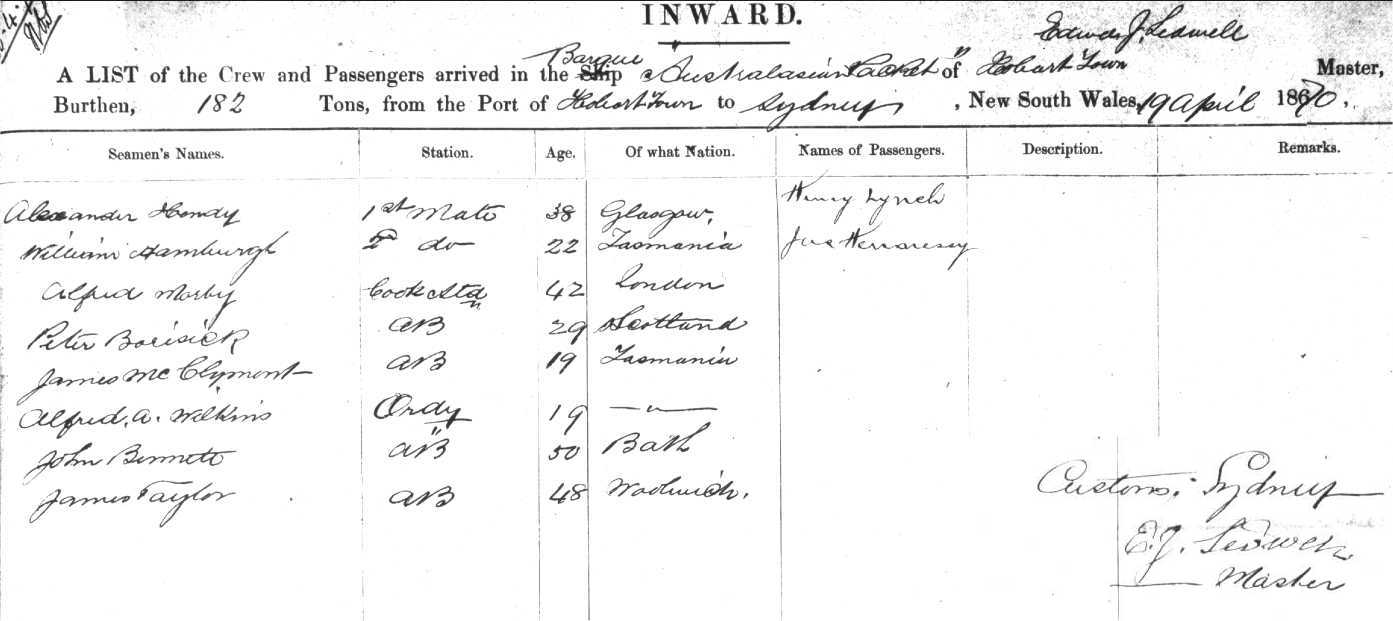 INWARD.
Edward J. Ledwell
Barque
A LIST of the Crew and Passengers arrived in the Ship Australasian Packet of Hobart Town Master,
Burthen, 182 Tons, from the Port of Hobart Town to Sydney, New South Wales, 19 April 1870,
Seamen's Names. Station. Age. Of what Nation. Names of Passengers. Description. Remarks.
Alexander Hendy 1st Mate 38 Glasgow, Henry Lynch
William Hamburgh 2 do 22 Tasmania Jas Hennessey
Alfred Morby Cook & Std 42 London
Peter 29 AB Scotland
James McClymont AB 19 Tasmania
Alfred. A. Wilkins Ordy 19 —"—
John Bennett AB 50 Bath
James Taylor AB 48 Woolwich.
Customs. Sydney
E. J. Ledwell
Master